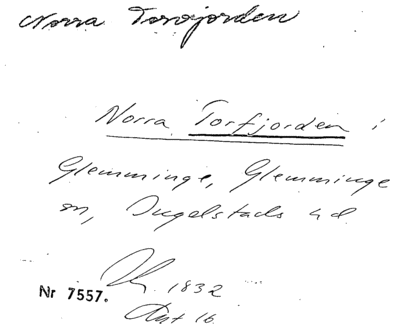 Norra Torvjorden
Norra Torfjorden i
Glemminge, Glemminge
sn, Ingelstads hd.
1832
Nr 7557.
Akt 16